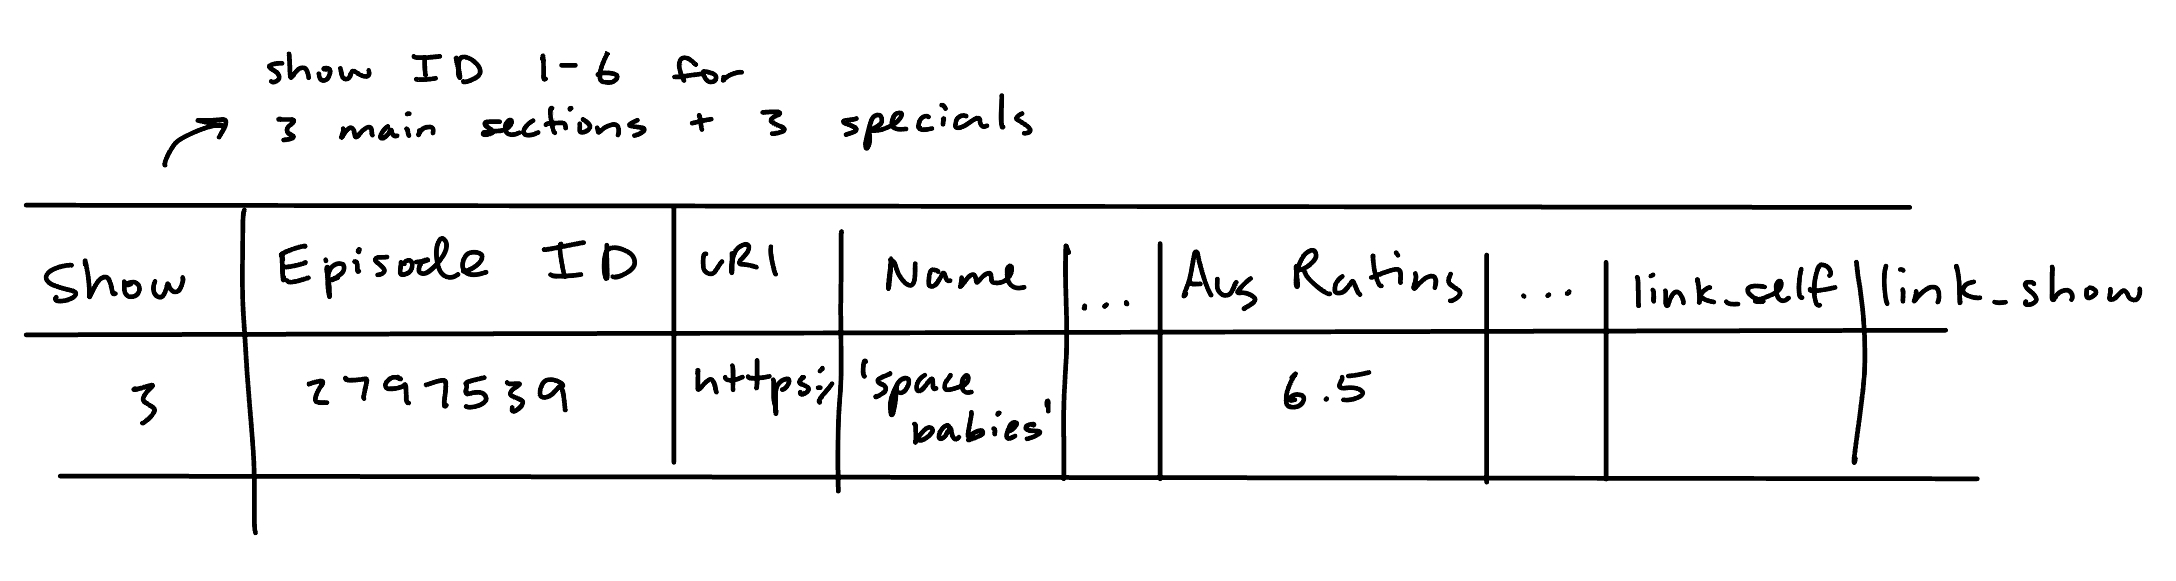 show ID 1-6 for
3 main sections + 3 specials
Show Episode ID URI Name ... Avg Rating ... link_self link_show
3 2797539 https:/ 'space 6.5
babies'